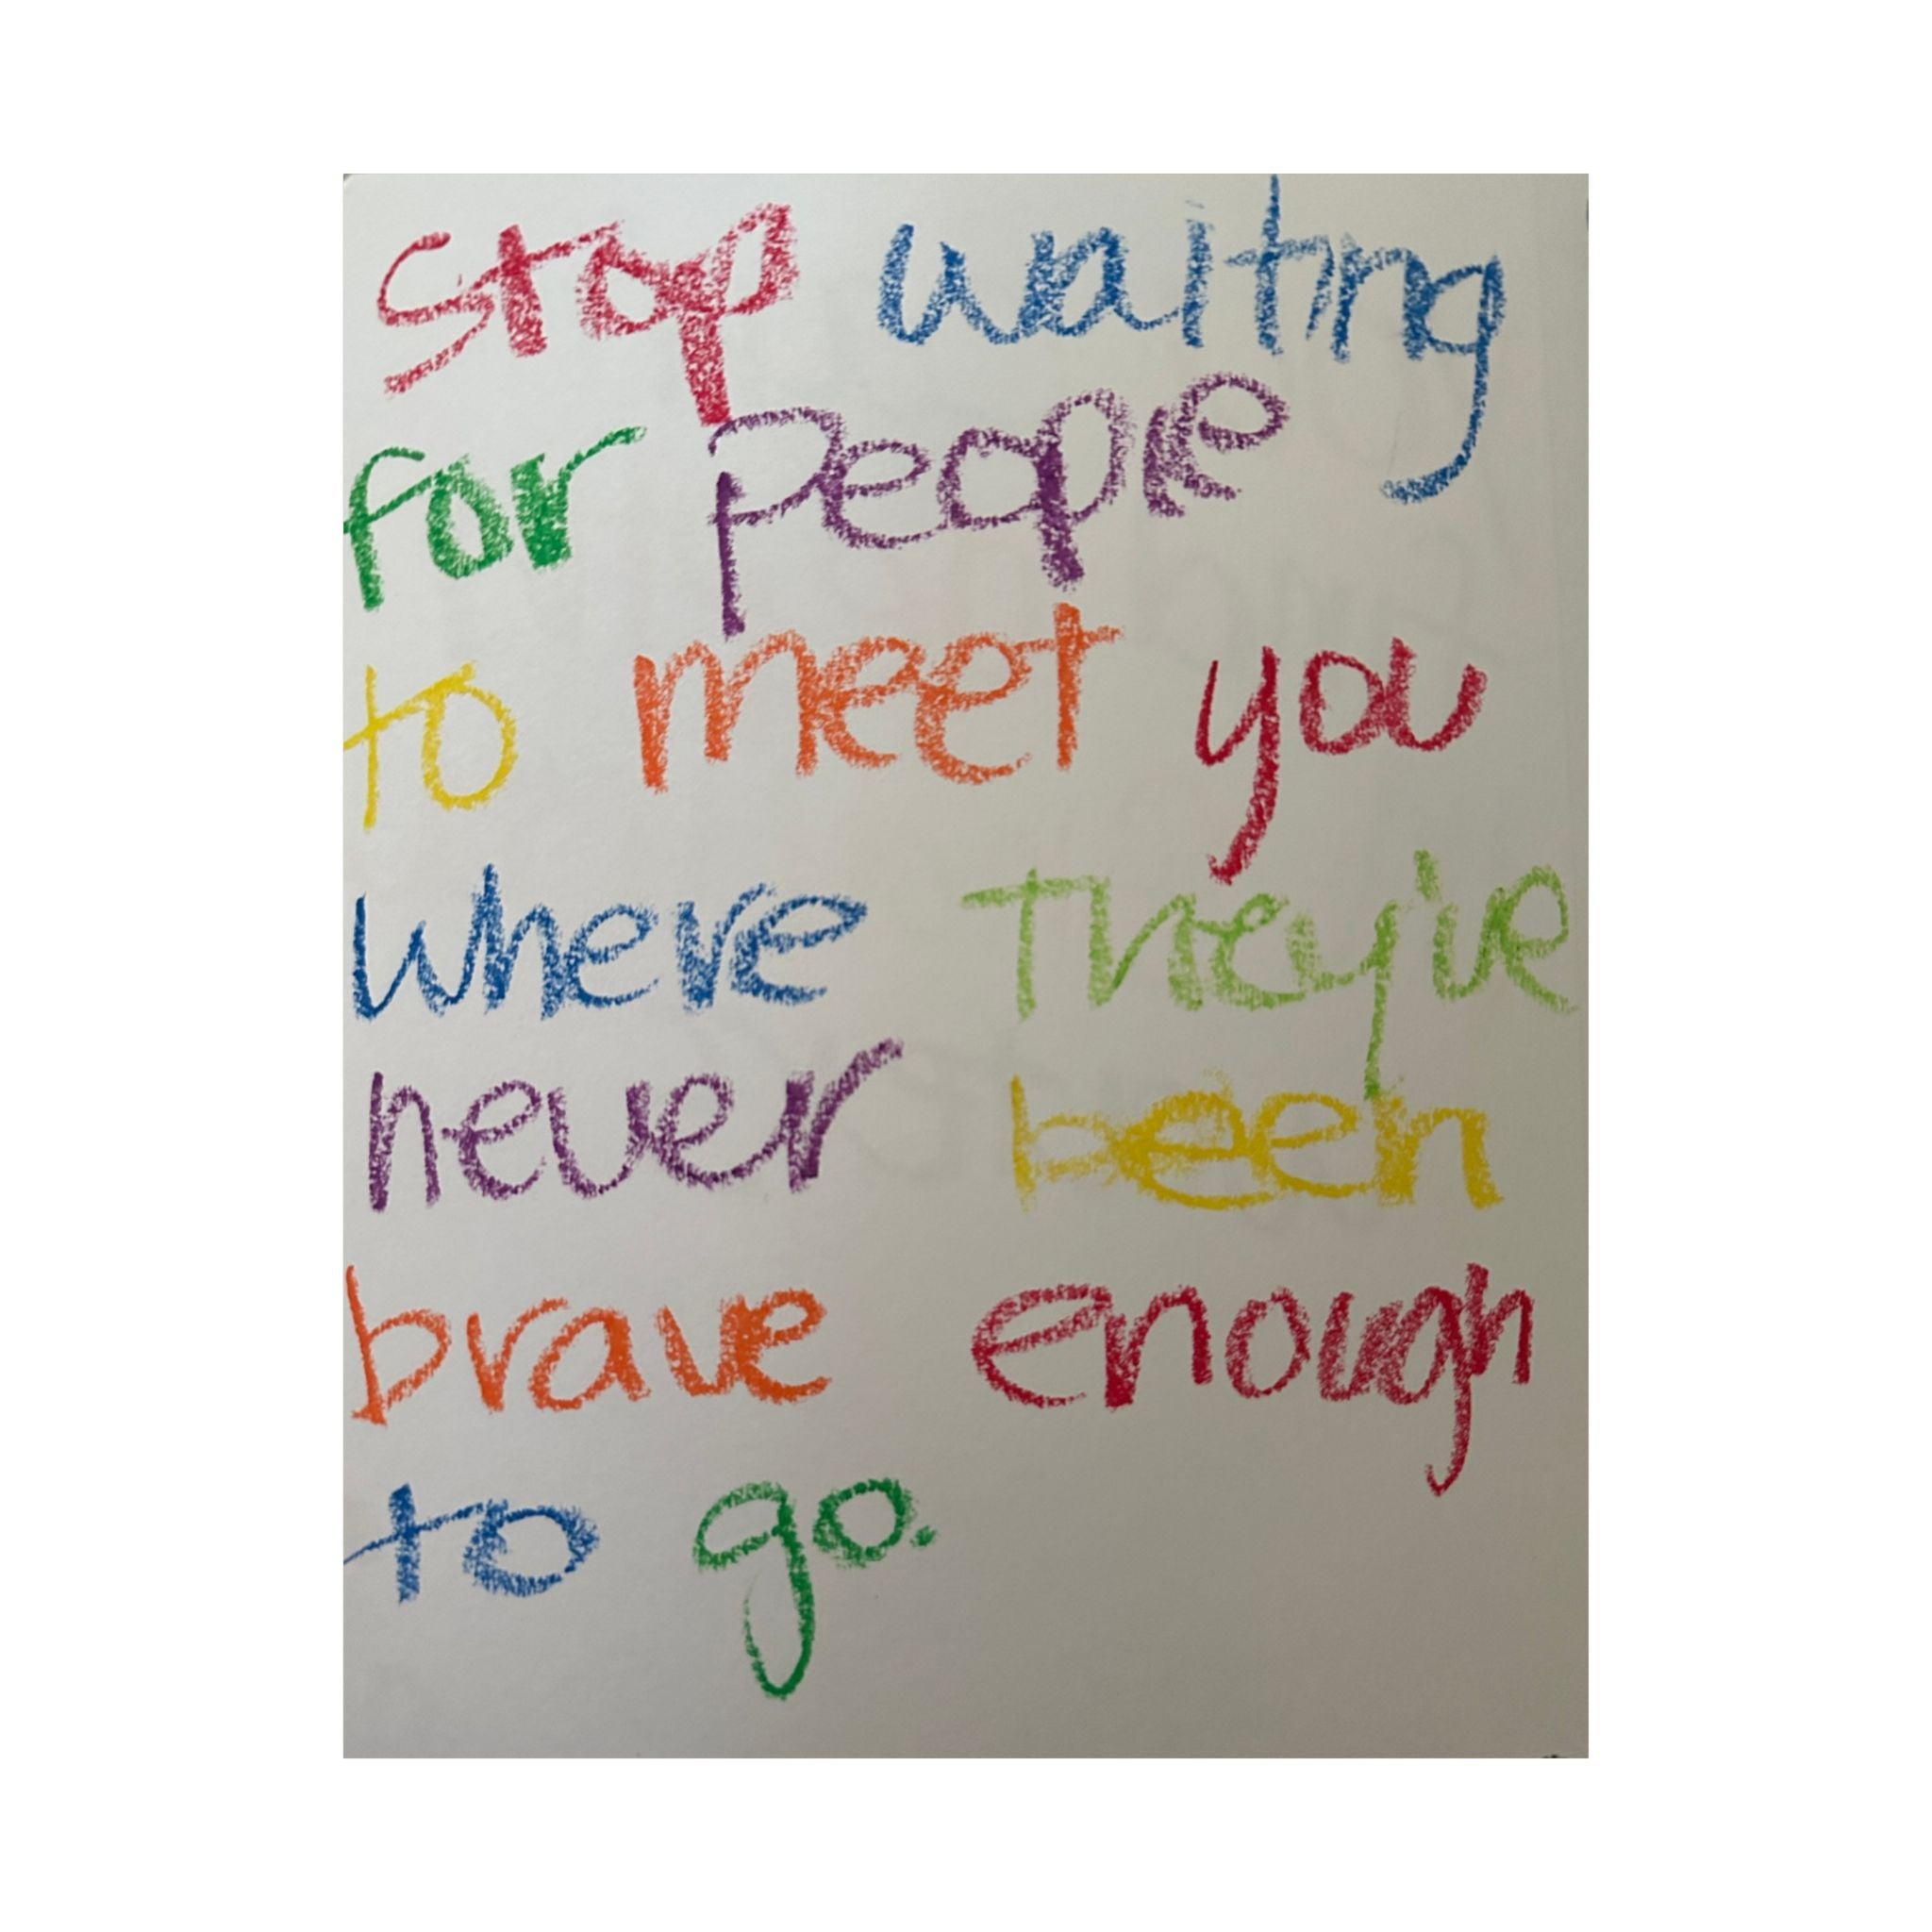 Stop waiting
for people
to meet you
where They've
never been
brave enough
to go.